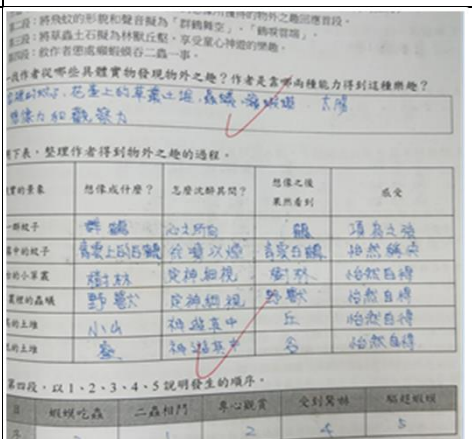 二段：將飛蚊的形貌和聲音擬為「群鶴舞空」、「鶴唳雲端」。
三段：將草蟲土石擬為林獸丘壑，享受童心神遊的樂趣。
四段：敘作者患處蝦蟆吞二蟲一事。
段作者從哪些具體實物發現物外之趣？作者是靠哪兩種能力得到這種樂趣？
花臺上的草叢土堆、蟲蟻、癩蝦蟆
想像力和觀察力
下表，整理作者得到物外之趣的過程。
實的景象 想像成什麼？ 怎麼沈醉其間？ 想像之後果然看到 感受
一群蚊子 群鶴 心之所向 鶴 項為之強
中的蚊子 青雲上的白鶴 於噴以煙 青雲白鶴 怡然稱快
的小草叢 樹林 定神細視 樹林 怡然自得
叢裡的蟲蟻 野獸 定神細視 野獸 怡然自得
的土堆 小山 神遊其中 丘 怡然自得
的土堆 壑 神遊其中 谷 怡然自得
第四段，以 1、2、3、4、5 說明發生的順序。
蝦蟆吃蟲 二蟲相鬥 專心觀賞 受到驚嚇 驅趕蝦蟆
1 2 4 5